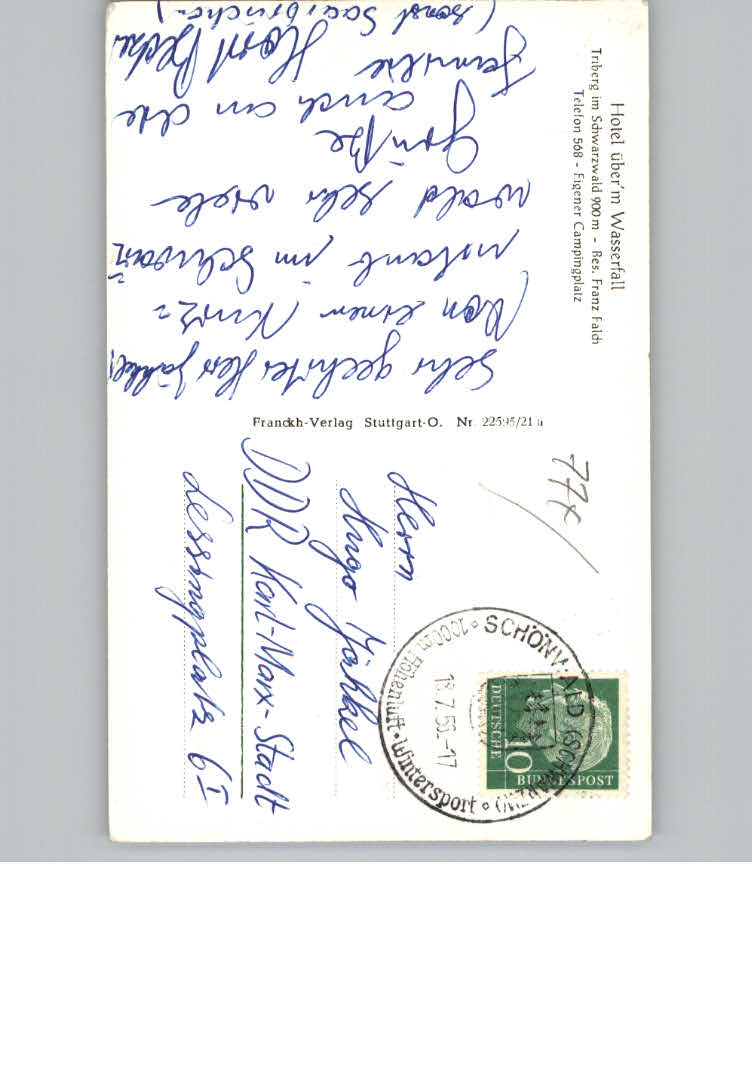 Hotel über'm Wasserfall
Triberg im Schwarzwald 900 m - Bes. Franz Faldı
Telefon 568 - Eigener Campingplatz
Sehr geehrter Herr Jähkel,
Von einem Kurz=
urlaub im Schwarz=
wald sehr viele
Grüße
auch an die
Familie Horst
(sonst Saarbrücken)
Franckh-Verlag Stuttgart-O. Nr. 22595/21 a
77x
Herrn
Hugo Jähkel
DDR Karl-Marx-Stadt
Lessingplatz 6 I
SCHÖNWALD (SCHWARZW)
1000m Höhenluft · Wintersport
18.7.56-17
DEUTSCHE
BUNDESPOST
10